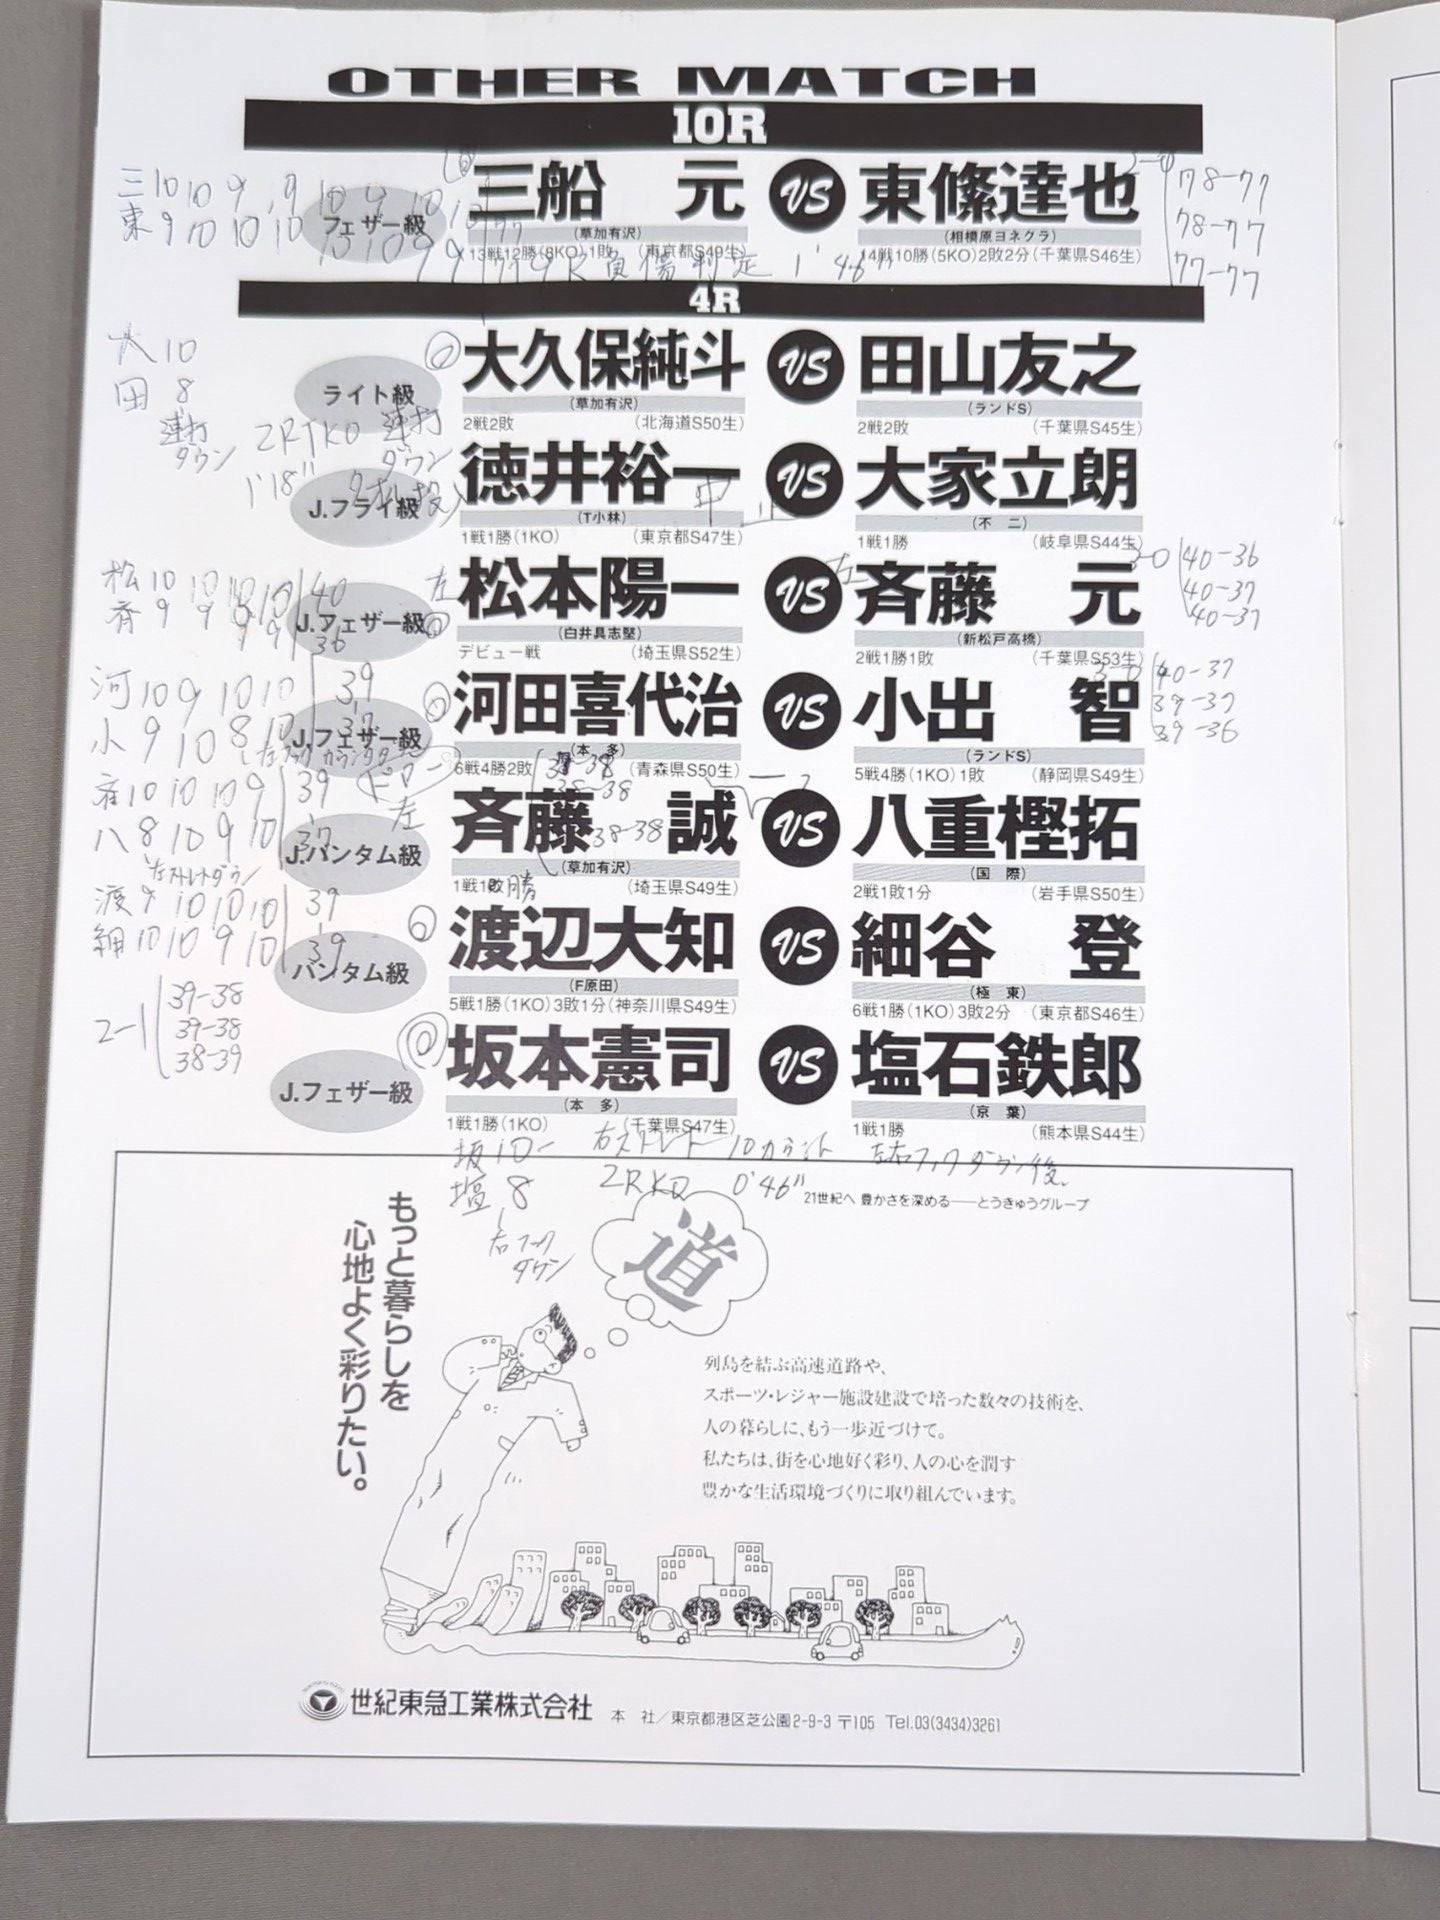 OTHER MATCH
10R
フェザー級
三船 元 VS 東絛達也
(草加有沢) (相模原ヨネクラ)
13戦12勝(8KO)1敗 (東京都S49生) 14戦10勝(5KO)2敗2分(千葉県S46生)
三 10 10 9 9 10 9 10 10 77
東 9 10 10 10 10 10 9 9 77
9R負傷判定 1'46"
78-77
78-77
77-77
4R
ライト級
大久保純斗 VS 田山友之
(草加有沢) (ランドS)
2戦2敗 (北海道S50生) 2戦2敗 (千葉県S45生)
大 10
田 8
連打
ダウン
2RTKO 連打
ダウン
1'18"
J.フライ級
徳井裕一 VS 大家立朗
(T小林) (不二)
1戦1勝(1KO) (東京都S47生) 1戦1勝 (岐阜県S44生)
中止
J.フェザー級
松本陽一 VS 斉藤 元
(白井具志堅) (新松戸高橋)
デビュー戦 (埼玉県S52生) 2戦1勝1敗 (千葉県S53生)
松 10 10 10 10 40
斉 9 9 9 9 36
左
左
3-0
40-36
40-37
40-37
J.フェザー級
河田喜代治 VS 小出 智
(本多) (ランドS)
6戦4勝2敗 (青森県S50生) 5戦4勝(1KO)1敗 (静岡県S49生)
河 10 9 10 10 39
小 9 10 8 10 37
3-0
40-37
39-37
39-36
J.バンタム級
斉藤 誠 VS 八重樫拓
(草加有沢) (国際)
1戦1敗 (埼玉県S49生) 2戦1敗1分 (岩手県S50生)
斉 10 10 10 9 39
八 8 10 9 10 37
ドロー
左
左ストレートダウン
38-38
38-38
勝
バンタム級
渡辺大知 VS 細谷 登
(F原田) (極東)
5戦1勝(1KO)3敗1分(神奈川県S49生) 6戦1勝(1KO)3敗2分 (東京都S46生)
渡 9 10 10 10 39
細 10 10 9 10 39
2-1
39-38
39-38
38-39
J.フェザー級
坂本憲司 VS 塩石鉄郎
(本多) (京葉)
1戦1勝(1KO) (千葉県S47生) 1戦1勝 (熊本県S44生)
坂 10
塩 8
右フック
ダウン
右ストレート 10カウント 左右フックダウン後、
2RKO 0'46"
21世紀へ 豊かさを深める——とうきゅうグループ
道
もっと暮らしを
心地よく彩りたい。
列島を結ぶ高速道路や、
スポーツ・レジャー施設建設で培った数々の技術を、
人の暮らしに、もう一歩近づけて。
私たちは、街を心地好く彩り、人の心を潤す
豊かな生活環境づくりに取り組んでいます。
世紀東急工業株式会社 本 社／東京都港区芝公園2-9-3 〒105 Tel.03(3434)3261